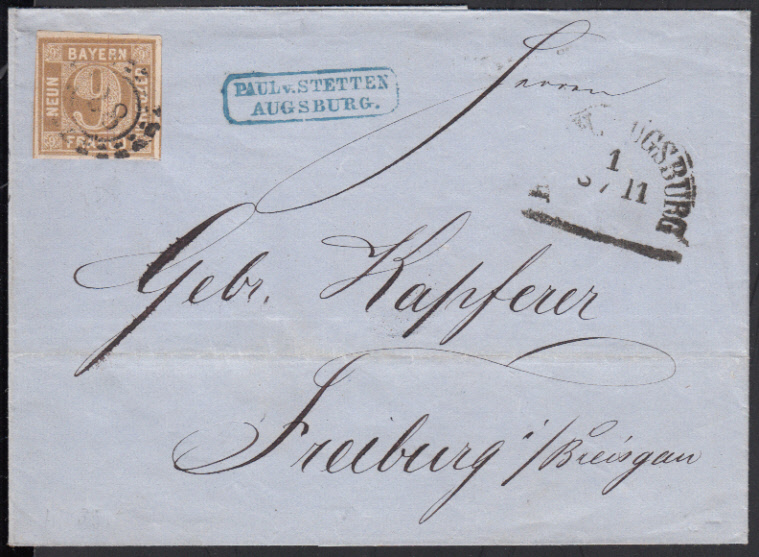 BAYERN
NEUN
9
PAUL v. STETTEN
AUGSBURG.
Herren
AUGSBURG
1
11
Gebr. Kapferer
Freiburg i/Breisgau